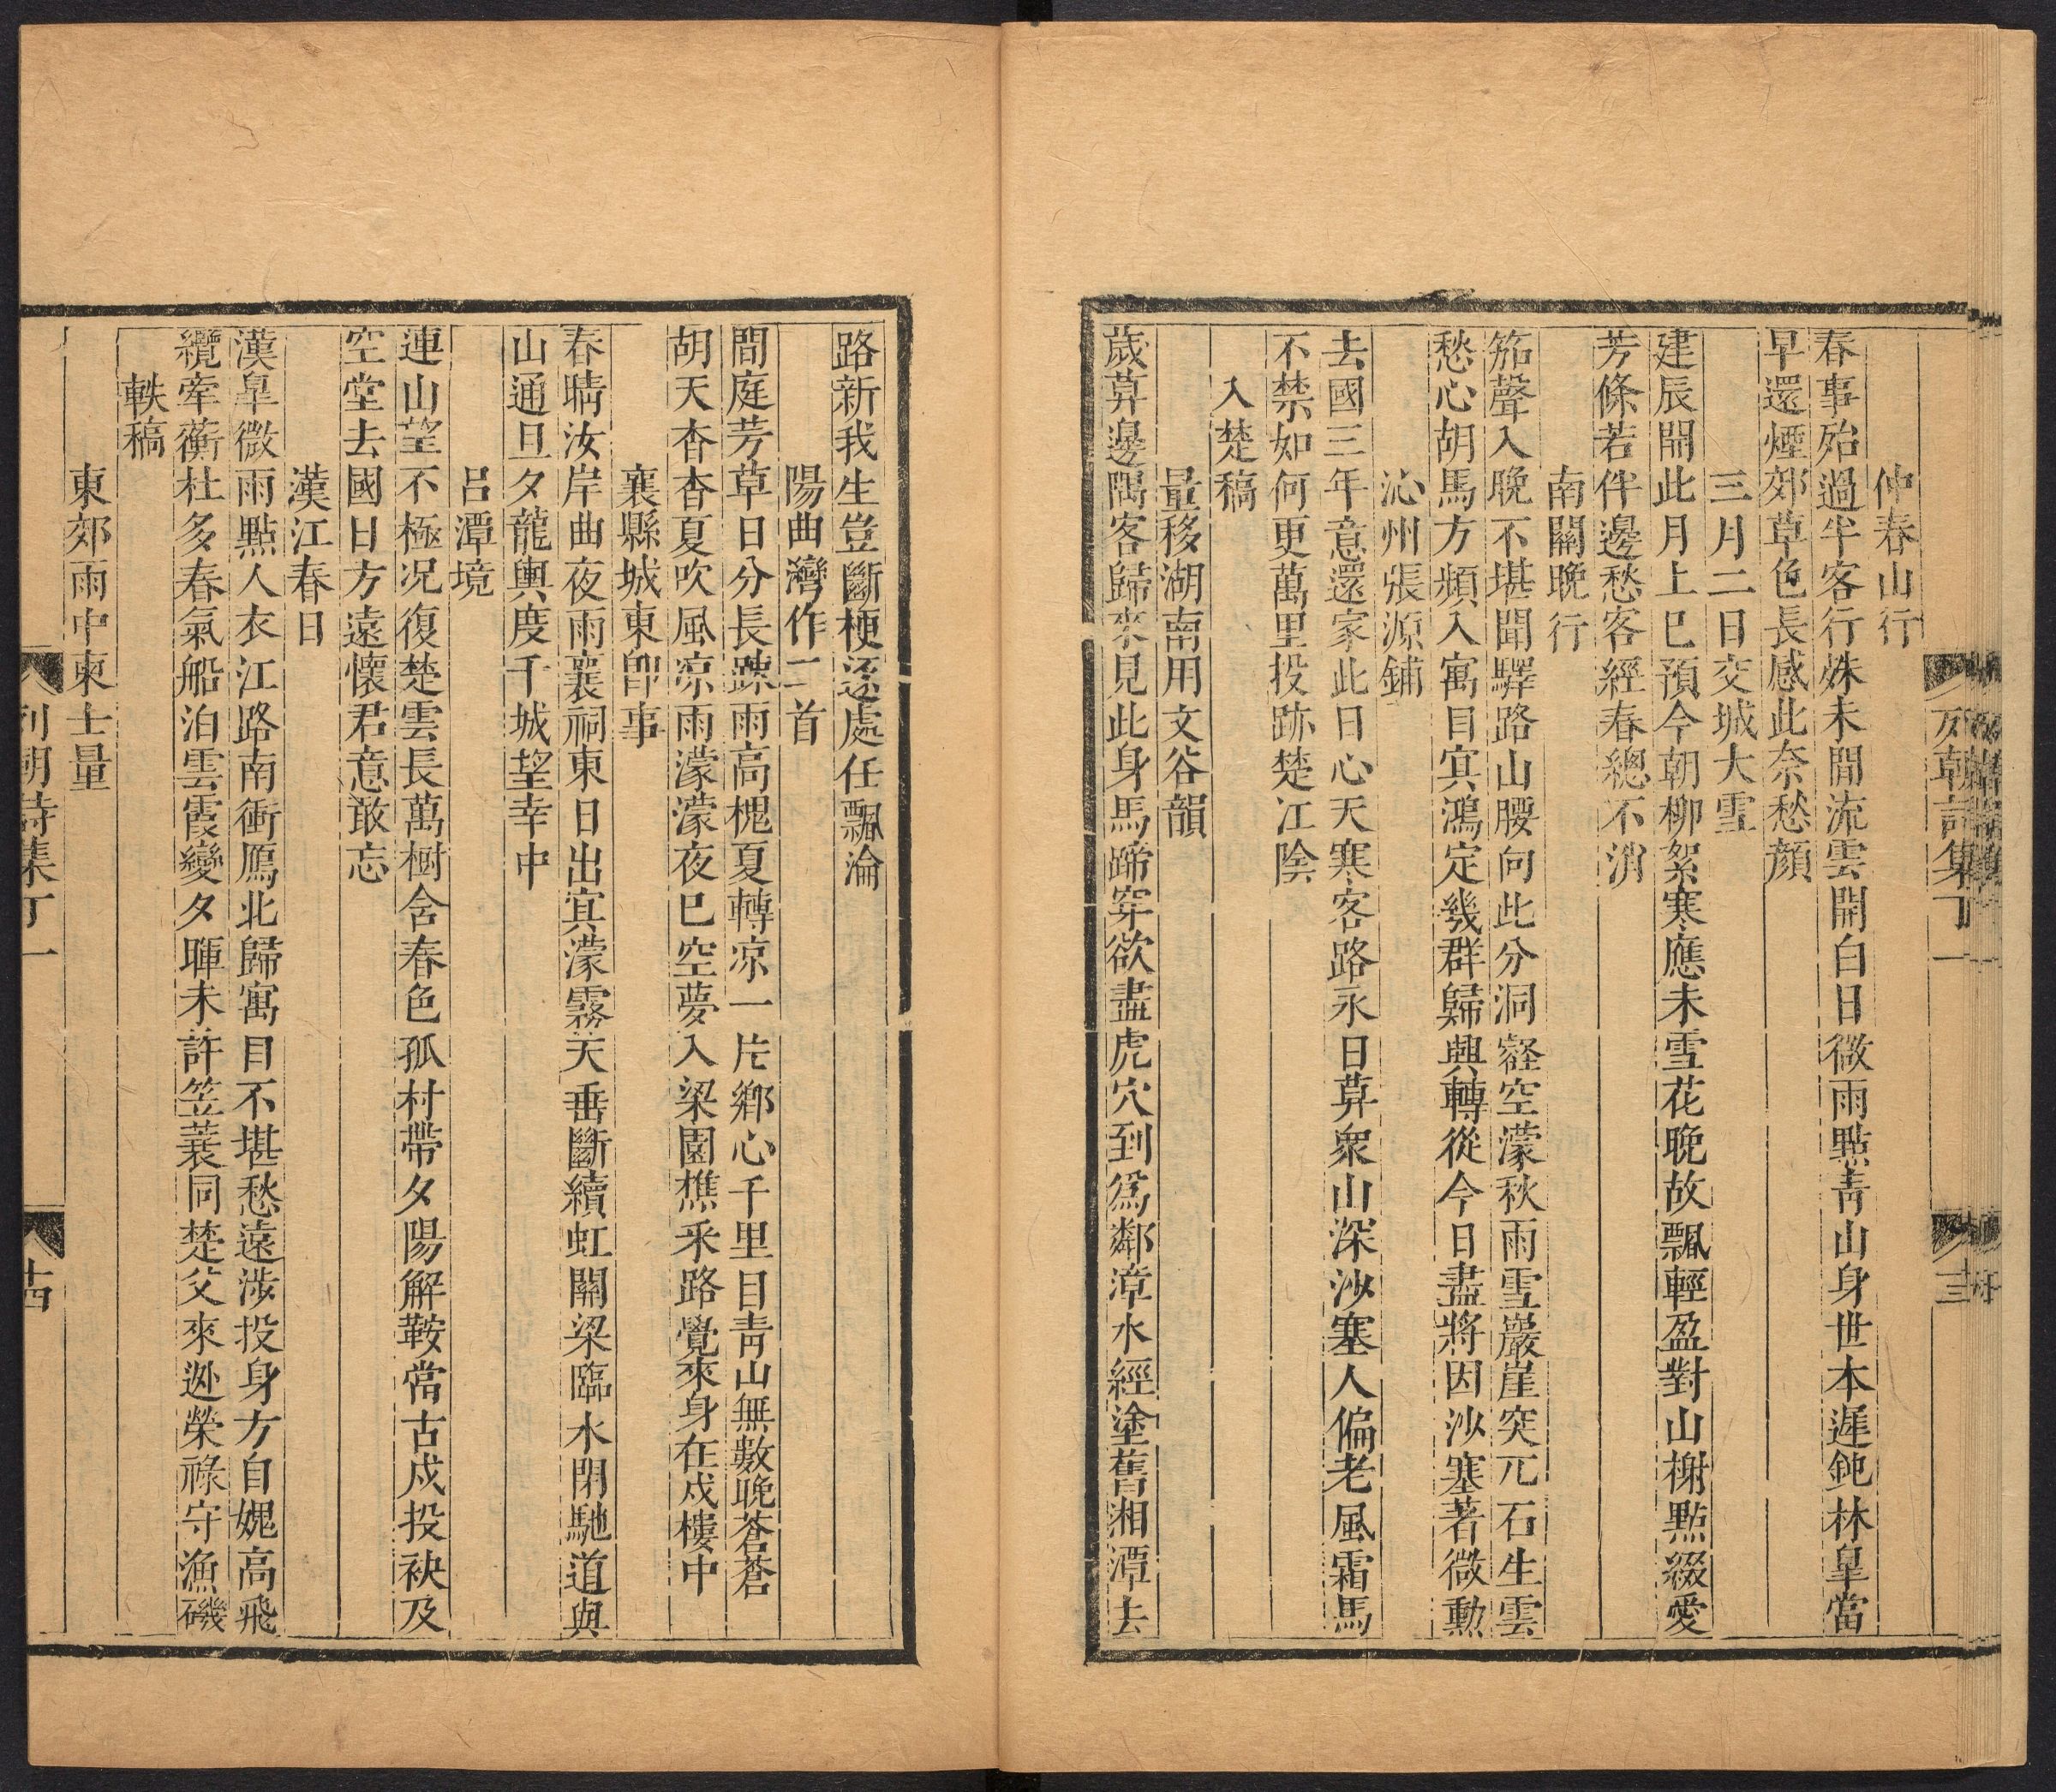 仲春山行
春事殆過半客行姝未閒流雲開白日微雨點靑山身世本遲鈍林皐當
早還煙郊草色長感此奈愁顔
三月二日交城大雪
建辰開此月上巳預今朝柳絮寒應未雪花晚故飄輕盈對山榭點綴愛
芳條若伴邊愁客經春總不消
南關晚行
笳聲入晚不堪聞驛路山腰向此分洞壑空濛秋雨雪巖崖突兀石生雲
愁心胡馬方頻入寓目㝠鴻定幾群歸興轉從今日盡將因沙塞著微勲
沁州張源鋪
去國三年意還家此日心天寒客路永日算衆山深沙塞人偏老風霜馬
不禁如何更萬里投跡楚江陰
入楚稿
量移湖南用文谷韻
歲算邊隅客歸來見此身馬蹄穿欲盡虎穴到爲鄰漳水經塗舊湘潭去
列朝詩集丁一
路新我生豈斷梗逐處任飄淪
陽曲灣作二首
間庭芳草日分長踈雨高槐夏轉凉一片鄉心千里目靑山無數晚蒼蒼
胡天杳杳夏吹風凉雨濛濛夜巳空夢入梁園樵釆路覺來身在戍樓中
襄縣城東卽事
春晴汝岸曲夜雨襄祠東日出㝠濛霧天垂斷續虹關梁臨水閉馳道與
山通旦夕龍輿度千城望幸中
呂潭境
連山望不極况復楚雲長萬樹含春色孤村帶夕陽解鞍當古戍投袂及
空堂去國日方遠懷君意敢忘
漢江春日
漢皐微雨點人衣江路南衝鴈北歸寓目不堪愁遠涉投身方自媿高飛
纜牽蘅杜多春氣船泊雲霞變夕暉未許笠蓑同楚父來逃榮祿守漁磯
軼稿
東郊雨中柬士量
列朝詩集丁一
十四